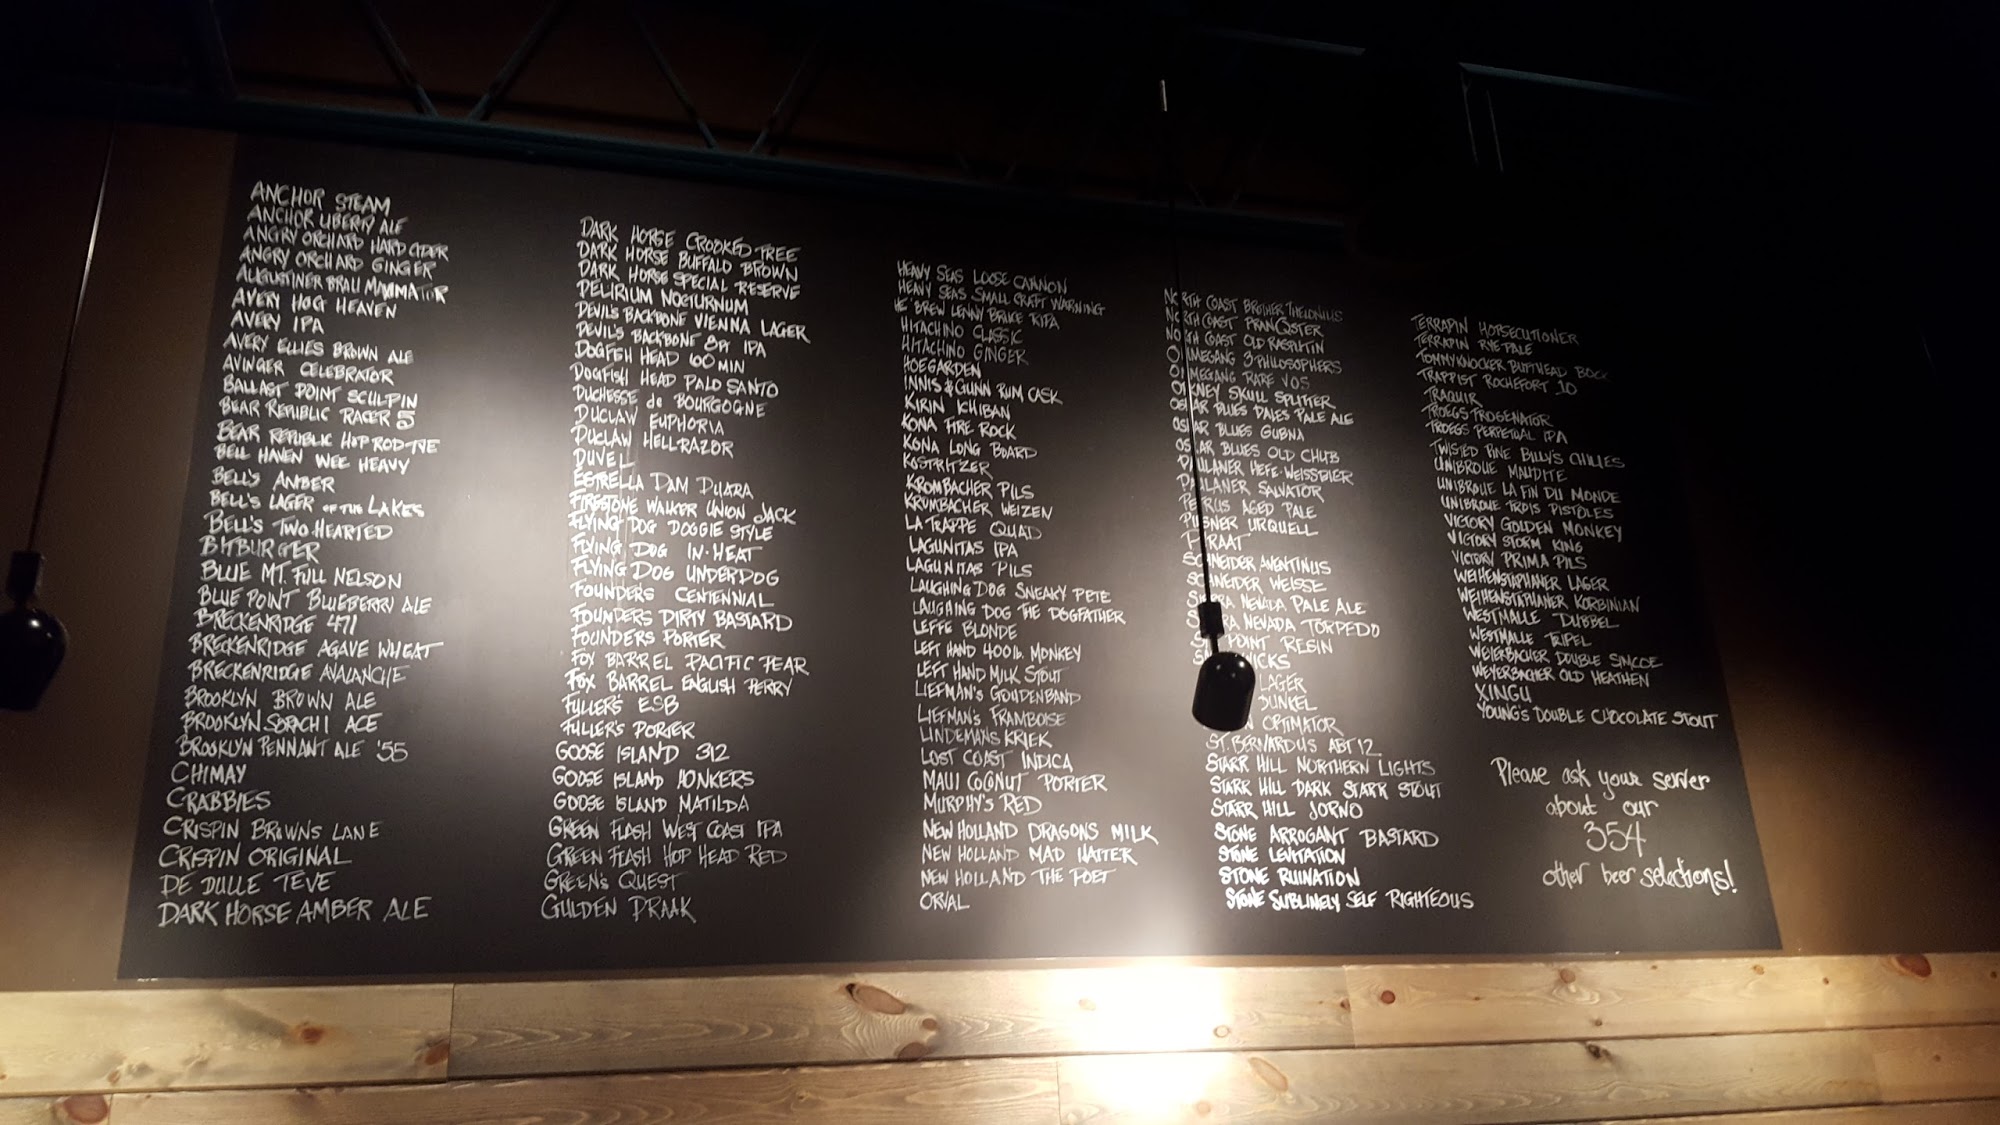 ANCHOR STEAM
ANCHOR LIBERTY ALE
ANGRY ORCHARD HARD CIDER
ANGRY ORCHARD GINGER
AUGUSTINER BRAU MAXIMATOR
AVERY HOG HEAVEN
AVERY IPA
AVERY ELLIES BROWN ALE
AYINGER CELEBRATOR
BALLAST POINT SCULPIN
BEAR REPUBLIC RACER 5
BEAR REPUBLIC HOP ROD RYE
BELL HAVEN WEE HEAVY
BELL'S AMBER
BELL'S LAGER OF THE LAKES
BELL'S TWO HEARTED
BITBURGER
BLUE MT. FULL NELSON
BLUE POINT BLUEBERRY ALE
BRECKENRIDGE 471
BRECKENRIDGE AGAVE WHEAT
BRECKENRIDGE AVALANCHE
BROOKLYN BROWN ALE
BROOKLYN SORACHI ACE
BROOKLYN PENNANT ALE '55
CHIMAY
CRABBIES
CRISPIN BROWNS LANE
CRISPIN ORIGINAL
DE DULLE TEVE
DARK HORSE AMBER ALE
DARK HORSE CROOKED TREE
DARK HORSE BUFFALO BROWN
DARK HORSE SPECIAL RESERVE
DELIRIUM NOCTURNUM
DEVIL'S BACKBONE VIENNA LAGER
DEVIL'S BACKBONE 8PT IPA
DOGFISH HEAD 60 MIN
DOGFISH HEAD PALO SANTO
DUCHESSE de BOURGOGNE
DUCLAW EUPHORIA
DUCLAW HELLRAZOR
DUVEL
ESTRELLA DAM DUARA
FIRESTONE WALKER UNION JACK
FLYING DOG DOGGIE STYLE
FLYING DOG IN-HEAT
FLYING DOG UNDERDOG
FOUNDERS CENTENNIAL
FOUNDERS DIRTY BASTARD
FOUNDERS PORTER
FOX BARREL PACIFIC PEAR
FOX BARREL ENGLISH PERRY
FULLER'S ESB
FULLER'S PORTER
GOOSE ISLAND 312
GOOSE ISLAND HONKERS
GOOSE ISLAND MATILDA
GREEN FLASH WEST COAST IPA
GREEN FLASH HOP HEAD RED
GREEN'S QUEST
GULDEN DRAAK
HEAVY SEAS LOOSE CANNON
HEAVY SEAS SMALL CRAFT WARNING
HE'BREW LENNY BRUCE RIPA
HITACHINO CLASSIC
HITACHINO GINGER
HOEGARDEN
INNIS & GUNN RUM CASK
KIRIN ICHIBAN
KONA FIRE ROCK
KONA LONG BOARD
KOSTRITZER
KROMBACHER PILS
KRUMBACHER WEIZEN
LA TRAPPE QUAD
LAGUNITAS IPA
LAGUNITAS PILS
LAUGHING DOG SNEAKY PETE
LAUGHING DOG THE DOGFATHER
LEFFE BLONDE
LEFT HAND 400lb. MONKEY
LEFT HAND MILK STOUT
LIEFMAN'S GOUDENBAND
LIEFMAN'S FRAMBOISE
LINDEMANS KRIEK
LOST COAST INDICA
MAUI COCONUT PORTER
MURPHY'S RED
NEW HOLLAND DRAGONS MILK
NEW HOLLAND MAD HATTER
NEW HOLLAND THE POET
ORVAL
NORTH COAST BROTHER THELONIUS
NORTH COAST PRANQSTER
NORTH COAST OLD RASPUTIN
OMMEGANG 3 PHILOSOPHERS
OMMEGANG RARE VOS
ORKNEY SKULL SPLITTER
OSKAR BLUES DALES PALE ALE
OSKAR BLUES GUBNA
OSKAR BLUES OLD CHUB
PAULANER HEFE-WEISSBIER
PAULANER SALVATOR
PETRUS AGED PALE
PILSNER URQUELL
PIRAAT
SCHNEIDER AVENTINUS
SCHNEIDER WEISSE
SIERRA NEVADA PALE ALE
SIERRA NEVADA TORPEDO
POINT RESIN
LAGER
DUNKEL
OPTIMATOR
ST. BERNARDUS ABT 12
STARR HILL NORTHERN LIGHTS
STARR HILL DARK STARR STOUT
STARR HILL JOMO
STONE ARROGANT BASTARD
STONE LEVITATION
STONE RUINATION
STONE SUBLIMELY SELF RIGHTEOUS
TERRAPIN HOPSECUTIONER
TERRAPIN RYE PALE
TOMMYKNOCKER BUTTHEAD BOCK
TRAPPIST ROCHEFORT 10
TRAQUIR
TROEGS TROEGENATOR
TROEGS PERPETUAL IPA
TWISTED PINE BILLY'S CHILIES
UNIBROUE MAUDITE
UNIBROUE LA FIN DU MONDE
UNIBROUE TROIS PISTOLES
VICTORY GOLDEN MONKEY
VICTORY STORM KING
VICTORY PRIMA PILS
WEIHENSTAPHANER LAGER
WEIHENSTAPHANER KORBINIAN
WESTMALLE DUBBEL
WESTMALLE TRIPEL
WEYERBACHER DOUBLE SIMCOE
WEYERBACHER OLD HEATHEN
XINGU
YOUNG'S DOUBLE CHOCOLATE STOUT
Please ask your server
about our
354
other beer selections!